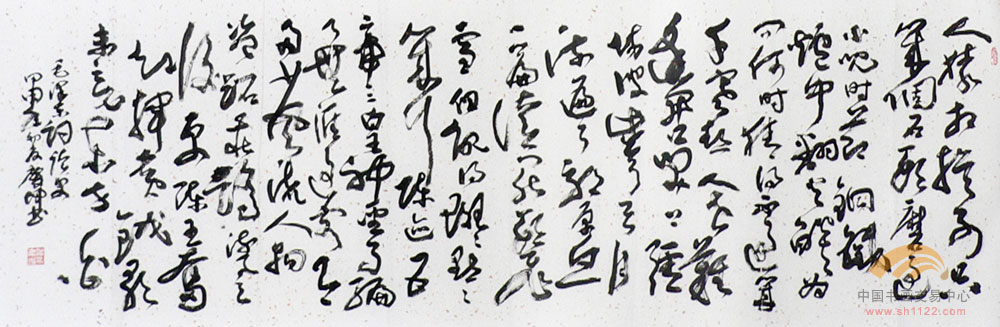 人猿相揖别只
几個石头磨过
小儿时节铜铁
爐中翻火焰为
问何时猜得不过几
千寒热人世難
逢开口笑上疆
场彼此弯弓月
流遍了郊原血
一篇读罢头飞
雪但记得斑斑点点
几行陈迹五
帝三皇神圣事骗
了无涯过客有
多少风流人物
盗跖庄蹻流誉
后更陈王奋
起挥黄钺歌
未竟东方白
毛泽东词读史
中国书画交易中心
www.sh1122.com